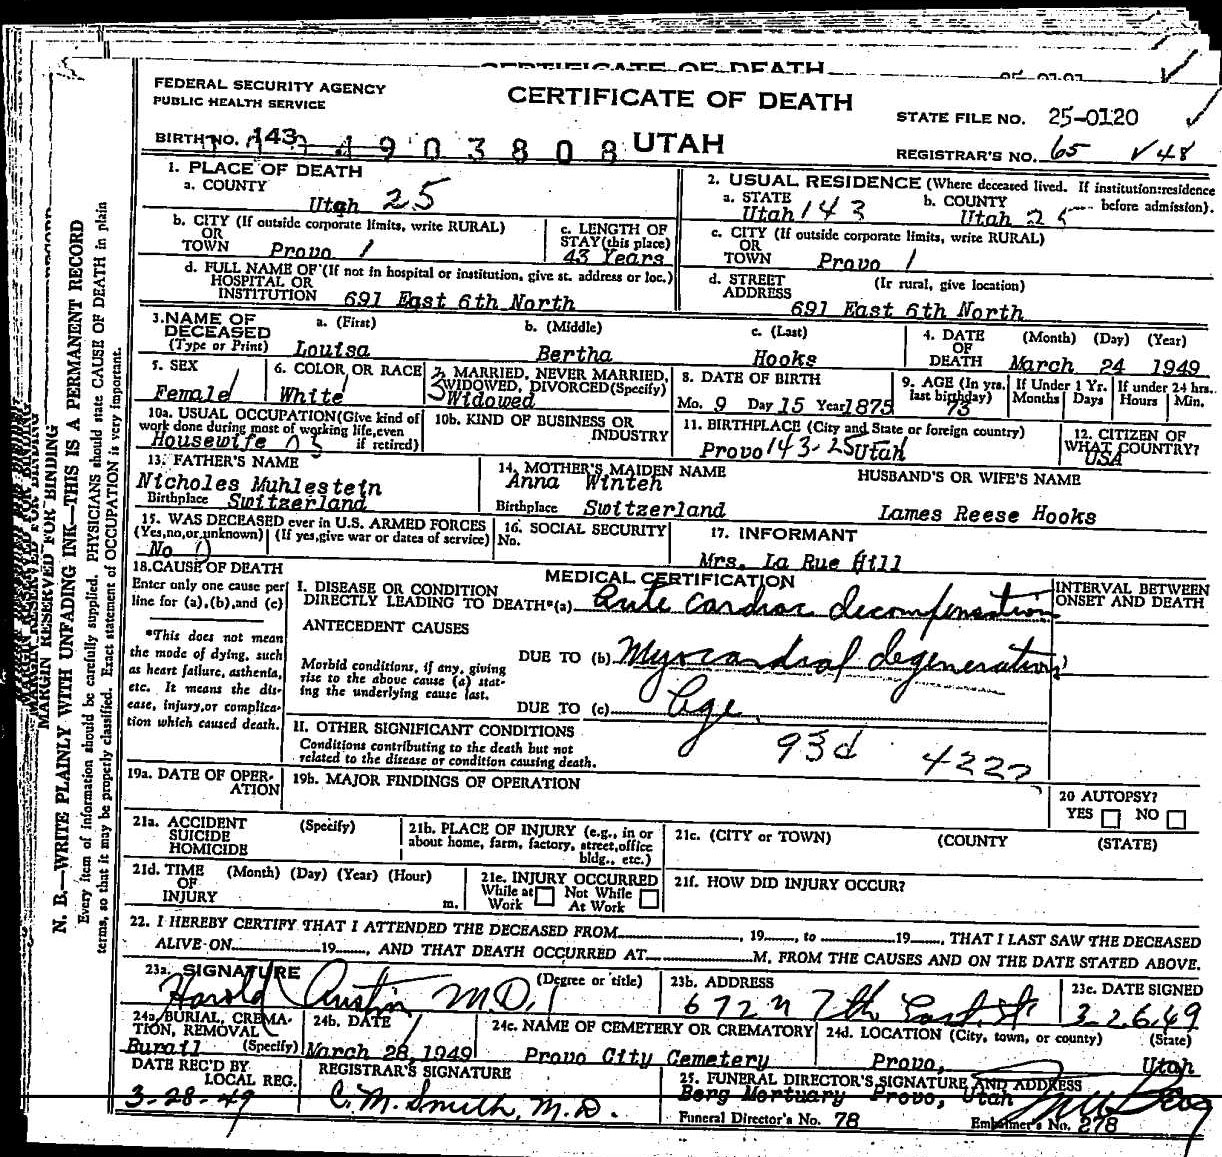 CERTIFICATE OF DEATH
FEDERAL SECURITY AGENCY
PUBLIC HEALTH SERVICE
CERTIFICATE OF DEATH
STATE FILE NO. 25-0120
BIRTH NO. 143 1903808 UTAH
REGISTRAR'S NO. 65 48
1. PLACE OF DEATH
a. COUNTY
Utah 25
2. USUAL RESIDENCE (Where deceased lived. If institution:residence before admission).
a. STATE b. COUNTY
Utah 143 Utah 25
b. CITY (If outside corporate limits, write RURAL)
OR
TOWN Provo 1
c. LENGTH OF STAY(this place)
43 Years
c. CITY (If outside corporate limits, write RURAL)
OR
TOWN Provo 1
d. FULL NAME OF (If not in hospital or institution, give st. address or loc.)
HOSPITAL OR
INSTITUTION 691 East 6th North
d. STREET (If rural, give location)
ADDRESS
691 East 6th North
3.NAME OF DECEASED
(Type or Print)
a. (First) b. (Middle) c. (Last)
Louisa Bertha Hooks
4. DATE OF DEATH (Month) (Day) (Year)
March 24 1949
5. SEX
Female
6. COLOR OR RACE
White
7. MARRIED, NEVER MARRIED, WIDOWED, DIVORCED(Specify)
Widowed
8. DATE OF BIRTH
Mo. 9 Day 15 Year 1875
9. AGE (In yrs. last birthday)
73
If Under 1 Yr. Months Days
If under 24 hrs. Hours Min.
10a. USUAL OCCUPATION(Give kind of work done during most of working life,even if retired)
Housewife
10b. KIND OF BUSINESS OR INDUSTRY
11. BIRTHPLACE (City and State or foreign country)
Provo 143-25 Utah
12. CITIZEN OF WHAT COUNTRY?
USA
13. FATHER'S NAME
Nicholes Muhlestein
Birthplace Switzerland
14. MOTHER'S MAIDEN NAME
Anna Winteh
Birthplace Switzerland
HUSBAND'S OR WIFE'S NAME
Lames Reese Hooks
15. WAS DECEASED ever in U.S. ARMED FORCES
(Yes,no,or,unknown) (If yes,give war or dates of service)
No 0
16. SOCIAL SECURITY No.
17. INFORMANT
Mrs. La Rue Hill
18.CAUSE OF DEATH
Enter only one cause per line for (a),(b),and (c)
*This does not mean the mode of dying, such as heart failure, asthenia, etc. It means the disease, injury,or complication which caused death.
MEDICAL CERTIFICATION
INTERVAL BETWEEN ONSET AND DEATH
I. DISEASE OR CONDITION
DIRECTLY LEADING TO DEATH*(a) Acute cardiac decompensation
ANTECEDENT CAUSES
Morbid conditions, if any, giving rise to the above cause (a) stating the underlying cause last.
DUE TO (b) Myocardial degeneration
DUE TO (c) Age
II. OTHER SIGNIFICANT CONDITIONS
Conditions contributing to the death but not related to the disease or condition causing death.
93d
19a. DATE OF OPERATION
19b. MAJOR FINDINGS OF OPERATION
20 AUTOPSY?
YES NO
21a. ACCIDENT (Specify)
SUICIDE
HOMICIDE
21b. PLACE OF INJURY (e.g., in or about home, farm, factory, street,office bldg., etc.)
21c. (CITY or TOWN) (COUNTY) (STATE)
21d. TIME (Month) (Day) (Year) (Hour)
OF
INJURY m.
21e. INJURY OCCURRED
While at Work Not While At Work
21f. HOW DID INJURY OCCUR?
22. I HEREBY CERTIFY THAT I ATTENDED THE DECEASED FROM , 19 , to 19 , THAT I LAST SAW THE DECEASED
ALIVE ON 19 , AND THAT DEATH OCCURRED AT M. FROM THE CAUSES AND ON THE DATE STATED ABOVE.
23a. SIGNATURE (Degree or title)
Harold Austin M.D.
23b. ADDRESS
672 N 7th East St
23c. DATE SIGNED
3-26-49
24a. BURIAL, CREMATION, REMOVAL (Specify)
Burail
24b. DATE
March 28, 1949
24c. NAME OF CEMETERY OR CREMATORY
Provo City Cemetery
24d. LOCATION (City, town, or county) (State)
Provo, Utah
DATE REC'D BY LOCAL REG.
3-28-49
REGISTRAR'S SIGNATURE
C. M. Smith, M.D.
25. FUNERAL DIRECTOR'S SIGNATURE AND ADDRESS
Berg Mortuary Provo, Utah
Funeral Director's No. 78
Embalmer's No. 278
MARGIN RESERVED FOR BINDING
N. B.—WRITE PLAINLY WITH UNFADING INK—THIS IS A PERMANENT RECORD
Every item of information should be carefully supplied. PHYSICIANS should state CAUSE OF DEATH in plain
terms, so that it may be properly classified. Exact statement of OCCUPATION is very important.